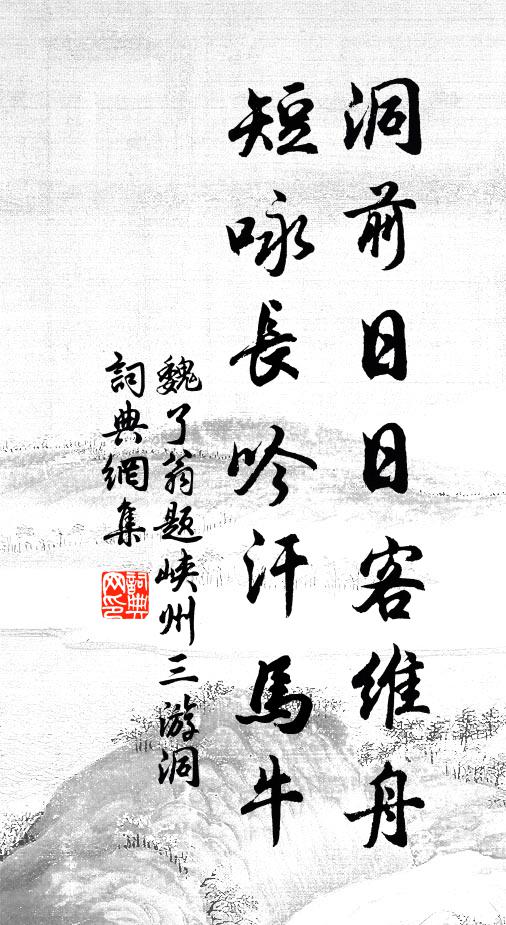 洞前日日客維舟
短咏長吟汗馬牛
魏了翁題峽州三游洞
詞典網集
詞典網印